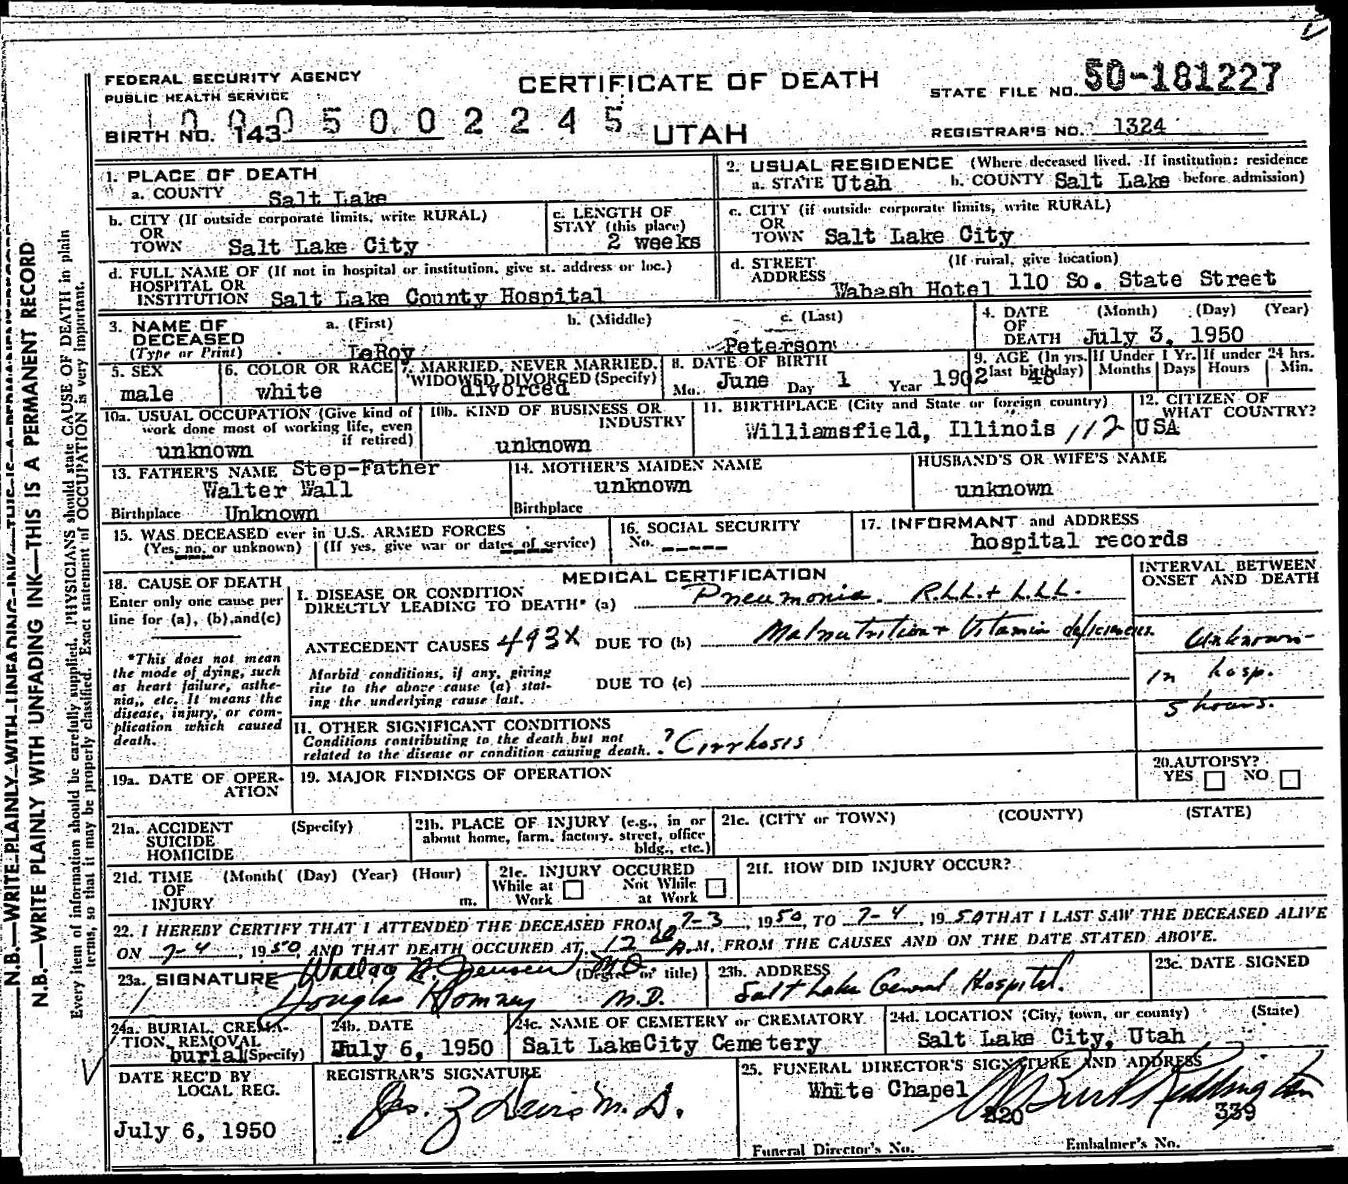 FEDERAL SECURITY AGENCY
PUBLIC HEALTH SERVICE
CERTIFICATE OF DEATH
STATE FILE NO. 50-181227
1000500 2245
BIRTH NO. 143
UTAH
REGISTRAR'S NO. 1324
1. PLACE OF DEATH
a. COUNTY Salt Lake
2. USUAL RESIDENCE (Where deceased lived. If institution: residence
a. STATE Utah b. COUNTY Salt Lake before admission)
b. CITY (If outside corporate limits, write RURAL)
OR
TOWN Salt Lake City
c. LENGTH OF
STAY (this place)
2 weeks
c. CITY (if outside corporate limits, write RURAL)
OR
TOWN Salt Lake City
d. FULL NAME OF (If not in hospital or institution, give st. address or loc.)
HOSPITAL OR
INSTITUTION Salt Lake County Hospital
d. STREET (If rural, give location)
ADDRESS Wabash Hotel 110 So. State Street
3. NAME OF DECEASED
(Type or Print)
a. (First) b. (Middle) c. (Last)
LeRoy Peterson
4. DATE (Month) (Day) (Year)
OF
DEATH July 3, 1950
5. SEX
male
6. COLOR OR RACE
white
7. MARRIED, NEVER MARRIED,
WIDOWED, DIVORCED (Specify)
divorced
8. DATE OF BIRTH
Mo. June Day 1 Year 1902
9. AGE (In yrs. last birthday) 48
If Under 1 Yr.
Months Days
If under 24 hrs.
Hours Min.
10a. USUAL OCCUPATION (Give kind of
work done most of working life, even
if retired)
unknown
10b. KIND OF BUSINESS OR
INDUSTRY
unknown
11. BIRTHPLACE (City and State or foreign country)
Williamsfield, Illinois 112
12. CITIZEN OF
WHAT COUNTRY?
USA
13. FATHER'S NAME Step-Father
Walter Wall
Birthplace Unknown
14. MOTHER'S MAIDEN NAME
unknown
Birthplace
HUSBAND'S OR WIFE'S NAME
unknown
15. WAS DECEASED ever in U.S. ARMED FORCES
(Yes, no, or unknown) (If yes, give war or dates of service)
16. SOCIAL SECURITY
No. -----
17. INFORMANT and ADDRESS
hospital records
18. CAUSE OF DEATH
Enter only one cause per
line for (a), (b), and (c)
*This does not mean
the mode of dying, such
as heart failure, asthe-
nia,, etc. It means the
disease, injury, or com-
plication which caused
death.
MEDICAL CERTIFICATION
I. DISEASE OR CONDITION
DIRECTLY LEADING TO DEATH* (a) Pneumonia. R.L.L. + L.L.L.
ANTECEDENT CAUSES 493X DUE TO (b) Malnutrition + Vitamin deficiencies.
Morbid conditions, if any, giving
rise to the above cause (a) stat-
ing the underlying cause last.
DUE TO (c)
INTERVAL BETWEEN
ONSET AND DEATH
Unknown-
in hosp.
5 hours.
II. OTHER SIGNIFICANT CONDITIONS
Conditions contributing to the death but not
related to the disease or condition causing death. ? Cirrhosis
19a. DATE OF OPER-
ATION
19. MAJOR FINDINGS OF OPERATION
20. AUTOPSY?
YES NO
21a. ACCIDENT (Specify)
SUICIDE
HOMICIDE
21b. PLACE OF INJURY (e.g., in or
about home, farm, factory, street, office
bldg., etc.)
21c. (CITY or TOWN) (COUNTY) (STATE)
21d. TIME (Month( (Day) (Year) (Hour)
OF
INJURY m.
21e. INJURY OCCURED
While at Work Not While at Work
21f. HOW DID INJURY OCCUR?
22. I HEREBY CERTIFY THAT I ATTENDED THE DECEASED FROM 7-3, 1950, TO 7-4, 1950 THAT I LAST SAW THE DECEASED ALIVE
ON 7-4, 1950, AND THAT DEATH OCCURED AT 12 A.M. FROM THE CAUSES AND ON THE DATE STATED ABOVE.
23a. SIGNATURE (Degree or title)
Wallace H. Jensen M.D.
Douglas Romney M.D.
23b. ADDRESS
Salt Lake General Hospital.
23c. DATE SIGNED
24a. BURIAL, CREMA-
TION, REMOVAL
burial (Specify)
24b. DATE
July 6, 1950
24c. NAME OF CEMETERY or CREMATORY
Salt LakeCity Cemetery
24d. LOCATION (City, town, or county) (State)
Salt Lake City, Utah
DATE REC'D BY
LOCAL REG.
July 6, 1950
REGISTRAR'S SIGNATURE
Jas. Z Davis M.D.
25. FUNERAL DIRECTOR'S SIGNATURE AND ADDRESS
White Chapel
220 339
Funeral Director's No. Embalmer's No.
N.B.—WRITE PLAINLY WITH UNFADING INK—THIS IS A PERMANENT RECORD
Every item of information should be carefully supplied. PHYSICIANS should state CAUSE OF DEATH in plain
terms, so that it may be properly classified. Exact statement of OCCUPATION is very important.